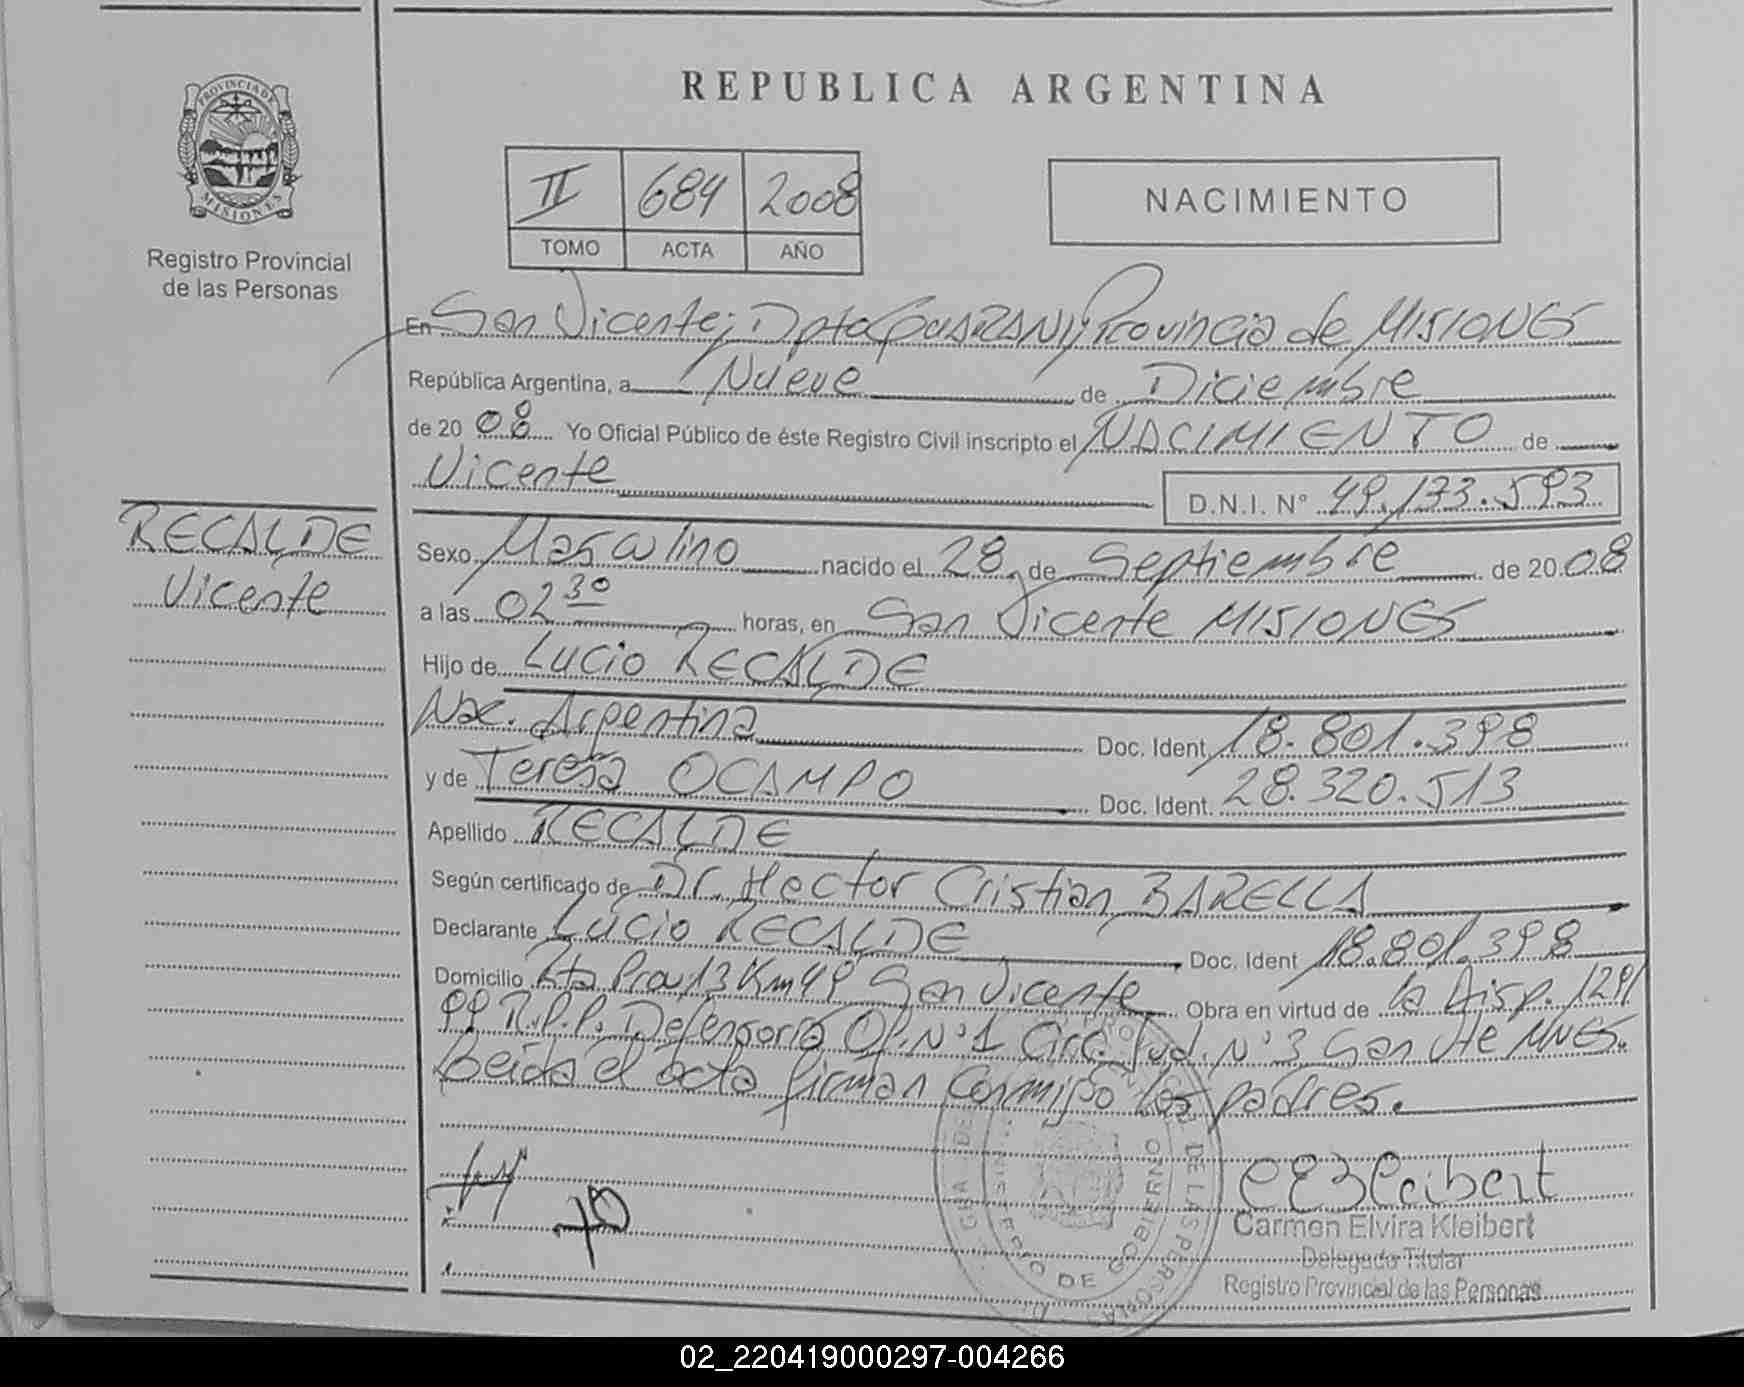 REPUBLICA ARGENTINA
PROVINCIA DE
MISIONES
Registro Provincial
de las Personas
II 684 2008
TOMO ACTA AÑO
NACIMIENTO
En San Vicente; Dpto GUARANI; Provincia de MISIONES
República Argentina, a Nueve de Diciembre
de 20 08 Yo Oficial Público de éste Registro Civil inscripto el NACIMIENTO de
Vicente D.N.I. N° 49.173.593
RECALDE
Vicente
Sexo Masculino nacido el 28 de Septiembre de 20 08
a las 02 30 horas, en San Vicente MISIONES
Hijo de Lucio RECALDE
Nac. Argentina Doc. Ident 18.801.398
y de Teresa OCAMPO Doc. Ident. 28.320.513
Apellido RECALDE
Según certificado de Dr. Hector Cristian BARELLA
Declarante Lucio RECALDE Doc. Ident 18.801.398
Domicilio Rta Prov 13 Km 49 San Vicente Obra en virtud de la Disp. 1291
99 R.P.P. Defensoría Of. N°1 Circ. Jud. N°3 San Vte MNES.
Leida el acta firman conmigo los padres.
DE LAS PERSONAS
DE GOBIERNO
Carmen Elvira Kleibert
Delegado Titular
Registro Provincial de las Personas
02_220419000297-004266